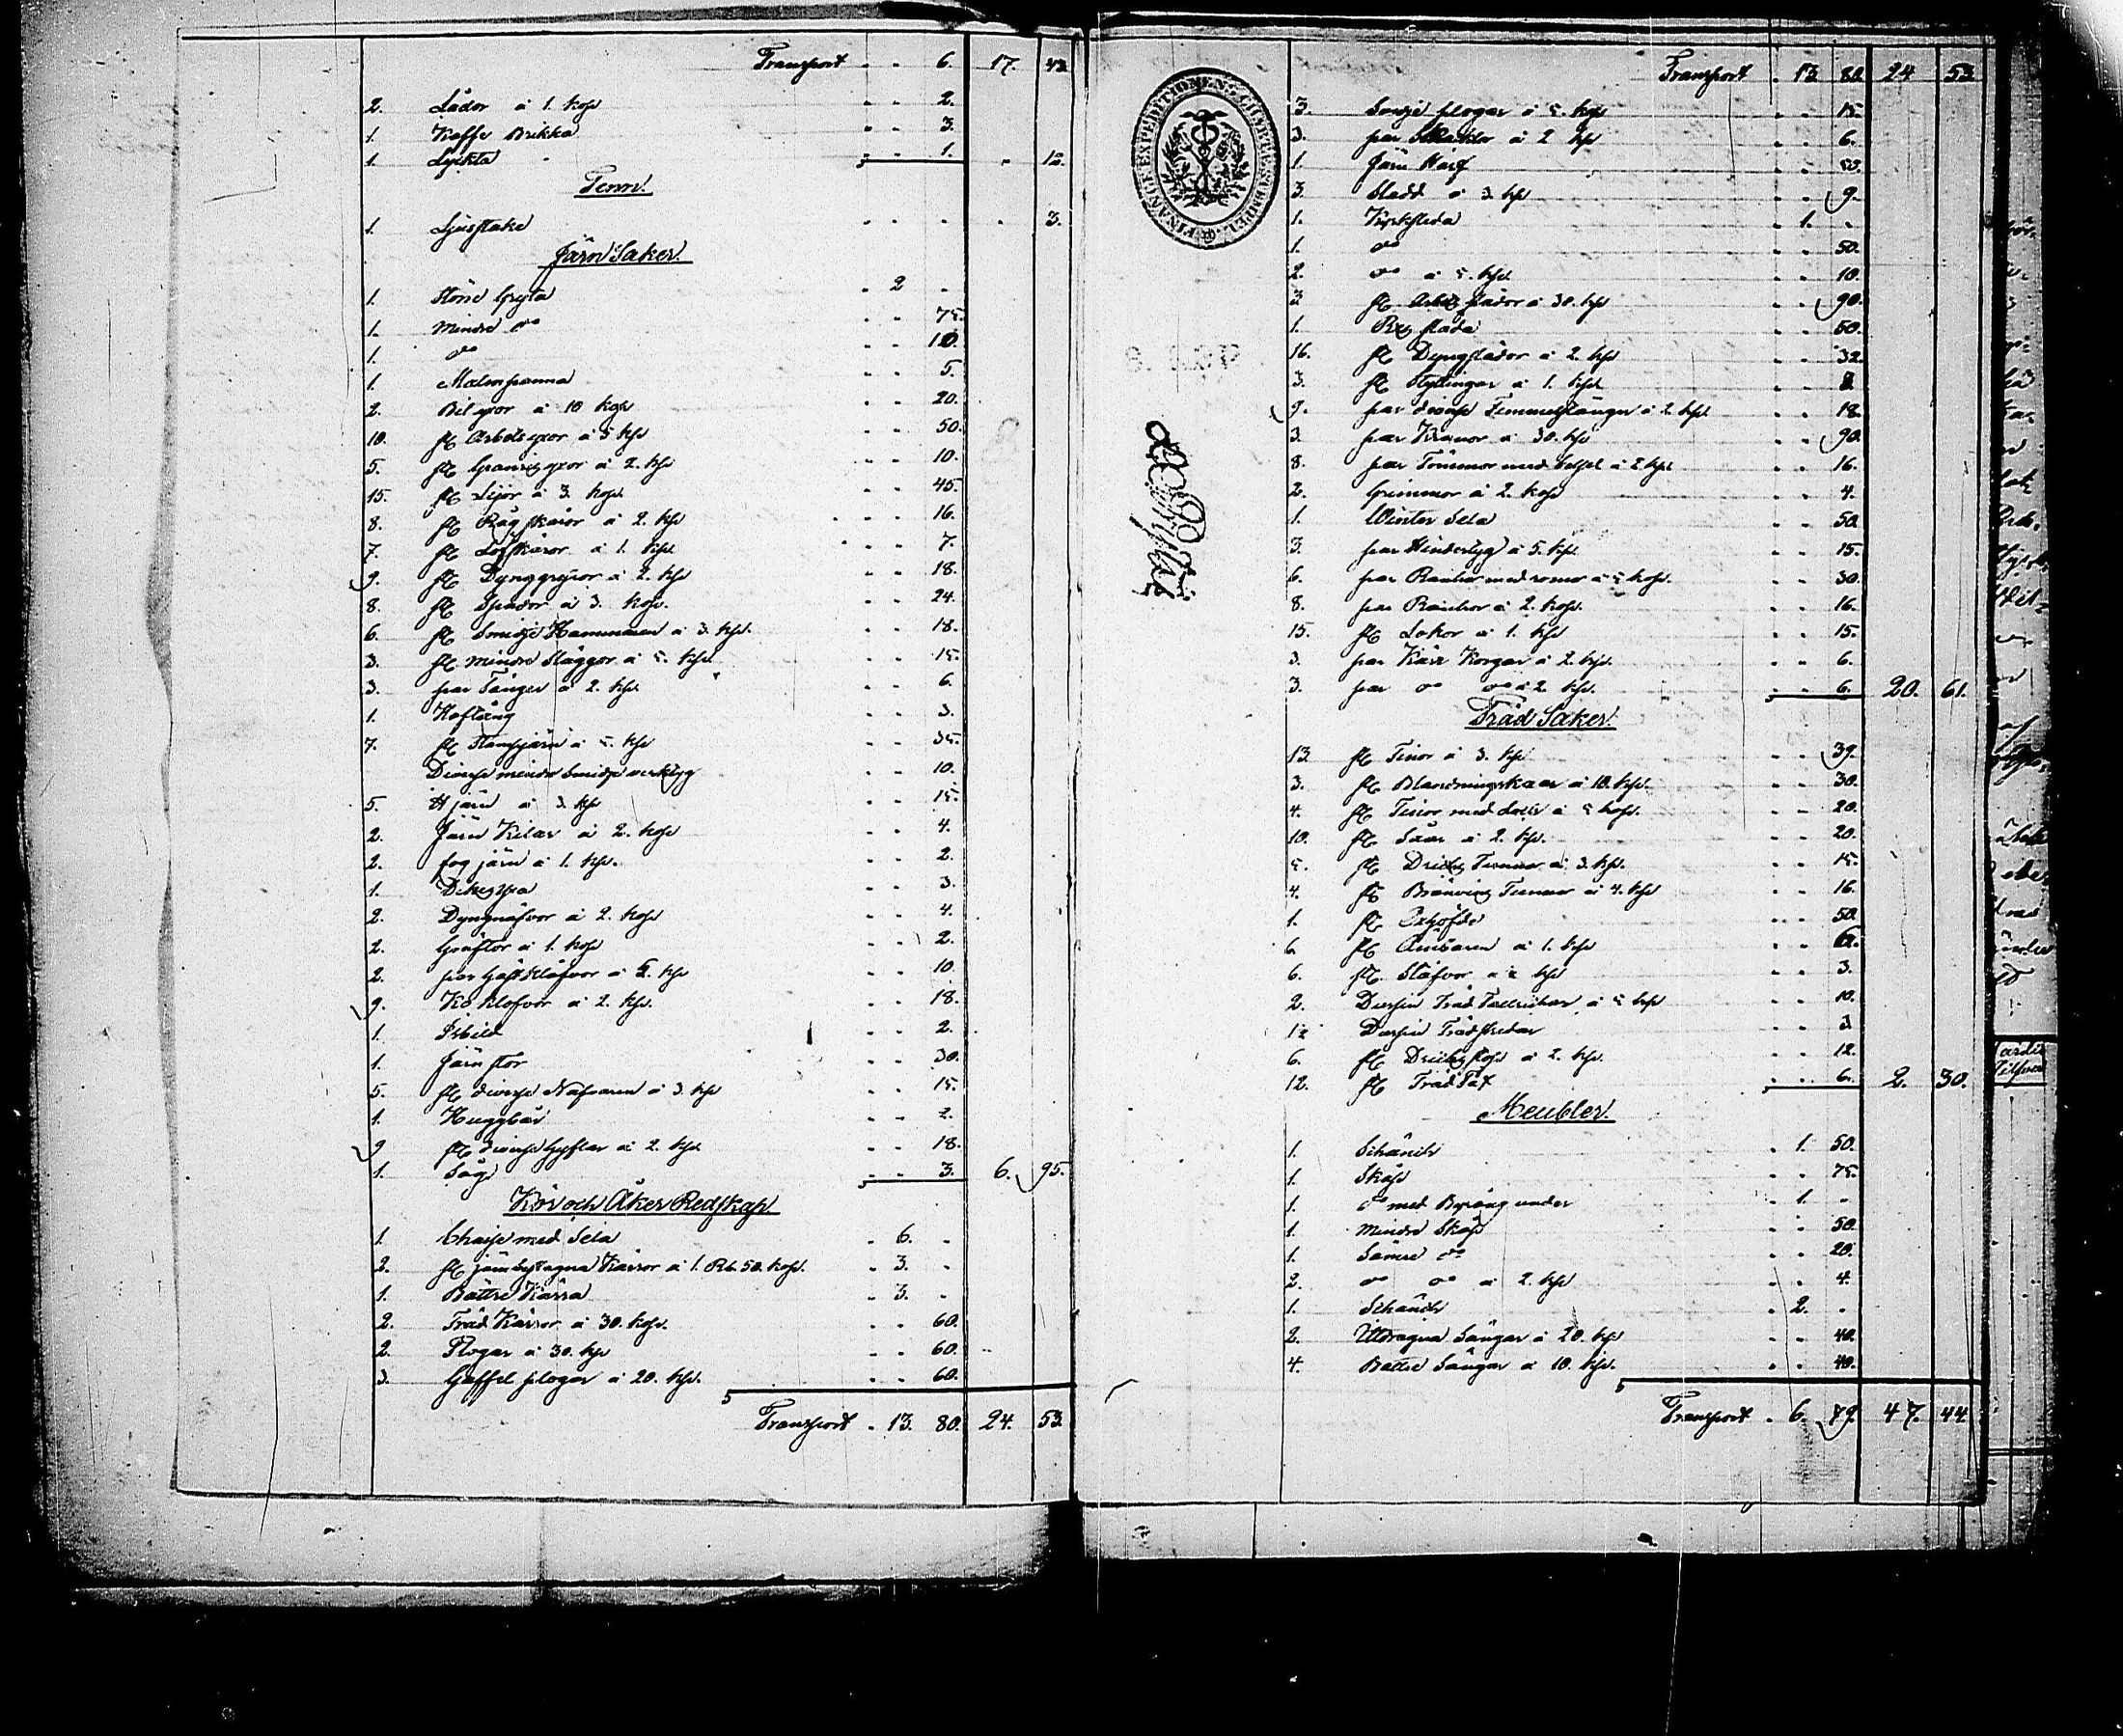 Transport - - 6. 17. 43
2. Lådor à 1. kop - - 2.
1. Kaffe Brikka - - 3.
1. Lyckta - - 1. - 12.
Tenn.
1. Ljusstake - - - - 3.
Järn Saker.
1. större Gryta - 2 -
1. mindre do - - 75.
1. do - - 10.
1. Malmpanna - - 5.
2. Bilyxor à 10 kop - - 20.
10. st Arbetsyxor à 5 kp - - 50.
5. st yxor à 2. kp - - 10.
15. st Lijor à 3. kop. - - 45.
8. st Rågskäror à 2. kp - - 16.
7. st Löfskäror à 1. kp. - - 7.
9. st Dynggrepor à 2. kp - - 18.
8. st Spador à 3. kop. - - 24.
6. st Smidje Hammaren à 3. kp. - - 18.
3. st mindre Släggor à 5. kp. - - 15.
3. par Tänger à 2. kp. - - 6.
1. Hoftång - - 3.
7. st Stampjärn à 5. kp - - 35.
Diverse mindre Smidje verktyg - - 10.
5. järn à 3. kp - - 15.
2. Järn Kilar à 2. kop - - 4.
2. fogjärn à 1. kp. - - 2.
1. Dikesyxa - - 3.
2. Dyngnäfvor à 2. kop - - 4.
2. Gräftor à 1. kop - - 2.
2. par Häst klåfvor à 5. kp - - 10.
9. Ko Klofvor à 2. kp. - - 18.
1. Isbill - - 2.
1. Järnstör - - 30.
5. st diverse Nafvaren à 3. kp - - 15.
1. - - 2.
9 st diverse Hyflar à 2. kp - - 18.
1. Såg - - 3. 6. 95.
Kör och Åker Redskap.
1. Chaise med Sela - 6. -
2. st järnbeslagna Kärror à 1. Rb. 50. kop. - 3. -
1. Bättre Kärra - 3. -
2. Träd Kärror à 30. kop. - - 60.
2. Plogar à 30. kp - - 60.
3. Gaffel plogar à 20. kp. - - 60.
Transport - 13. 80. 24. 53.
Transport - 13 80. 24 53
FINANCE EXPEDITIONENS CHARTÆ STEMPEL
3. plogar à 5. kop - - 15.
3. par Skaklor à 2 kp - - 6.
1. Järn Harf - - 50.
3. Sladd à 3. kp - - 9.
1. Kyrksleda - 1. -
1. do - - 50.
2. do à 5. kp. - - 10.
3 st Arbetz slädor à 30. kp - - 90.
1. släda - - 50.
16. st Dyngslädor à 2. kp - - 32.
3. st Styttingar à 1. kp - - 3.
9. par diverse Timmerstänger à 2. kp - - 18.
3. par Kranor à 30. kp - - 90.
8. par Tömmar med betsel à 2 kp. - - 16.
2. Grimmor à 2. kop - - 4.
1. Winter Sela - - 50.
3. par Hindertyg à 5. kp. - - 15.
6. par Rankor med à 5 kop. - - 30.
8. par Rankor à 2. kop. - - 16.
15. st Lokor à 1. kp - - 15.
3. par Kärr Korgar à 2. kp. - - 6.
3. par do do à 2 kp. - - 6. 20. 61.
Träd Saker.
13. st Tinor à 3. kp - - 39.
3. st Blandningskaar à 10. kp. - - 30.
4. st Tinor med à 5 kop. - - 20.
10. st Såar à 2. kp. - - 20.
5. st Drickz Tunnor à 3. kp. - - 15.
4. st Bränvinz Tunnor à 4. kp - - 16.
1. st Oxhöfde - - 50.
6. st à 1. kp - - 6.
6. st Ståfvor à ½ kp - - 3.
2. Dussin Träd Tallrickar à 5 kp - - 10.
1½ Dussin Trädskedar - - 3
6. st Drickz stop à 2. kp. - - 12.
12. st Träd Fat - - 6. 2. 30.
Meubler.
1. Schänck - 1. 50.
1. Skåp - - 75.
1. do med Byrång under - 1. -
1. mindre Skåp - - 50.
1. Sämre do - - 20.
2. do do à 2. kp - - 4.
1. Schänck - 2. -
2. Utdragna Sängar à 20. kp - - 40.
4. Battre Sängar à 10. kp. - - 40.
Transport - 6. 79. 47. 44.